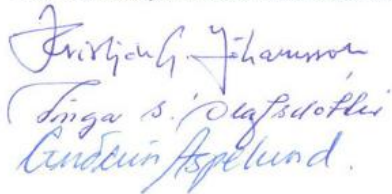 Kristján G. Jóhannsson
Inga S. Ólafsdóttir
Guðrún Aspelund.